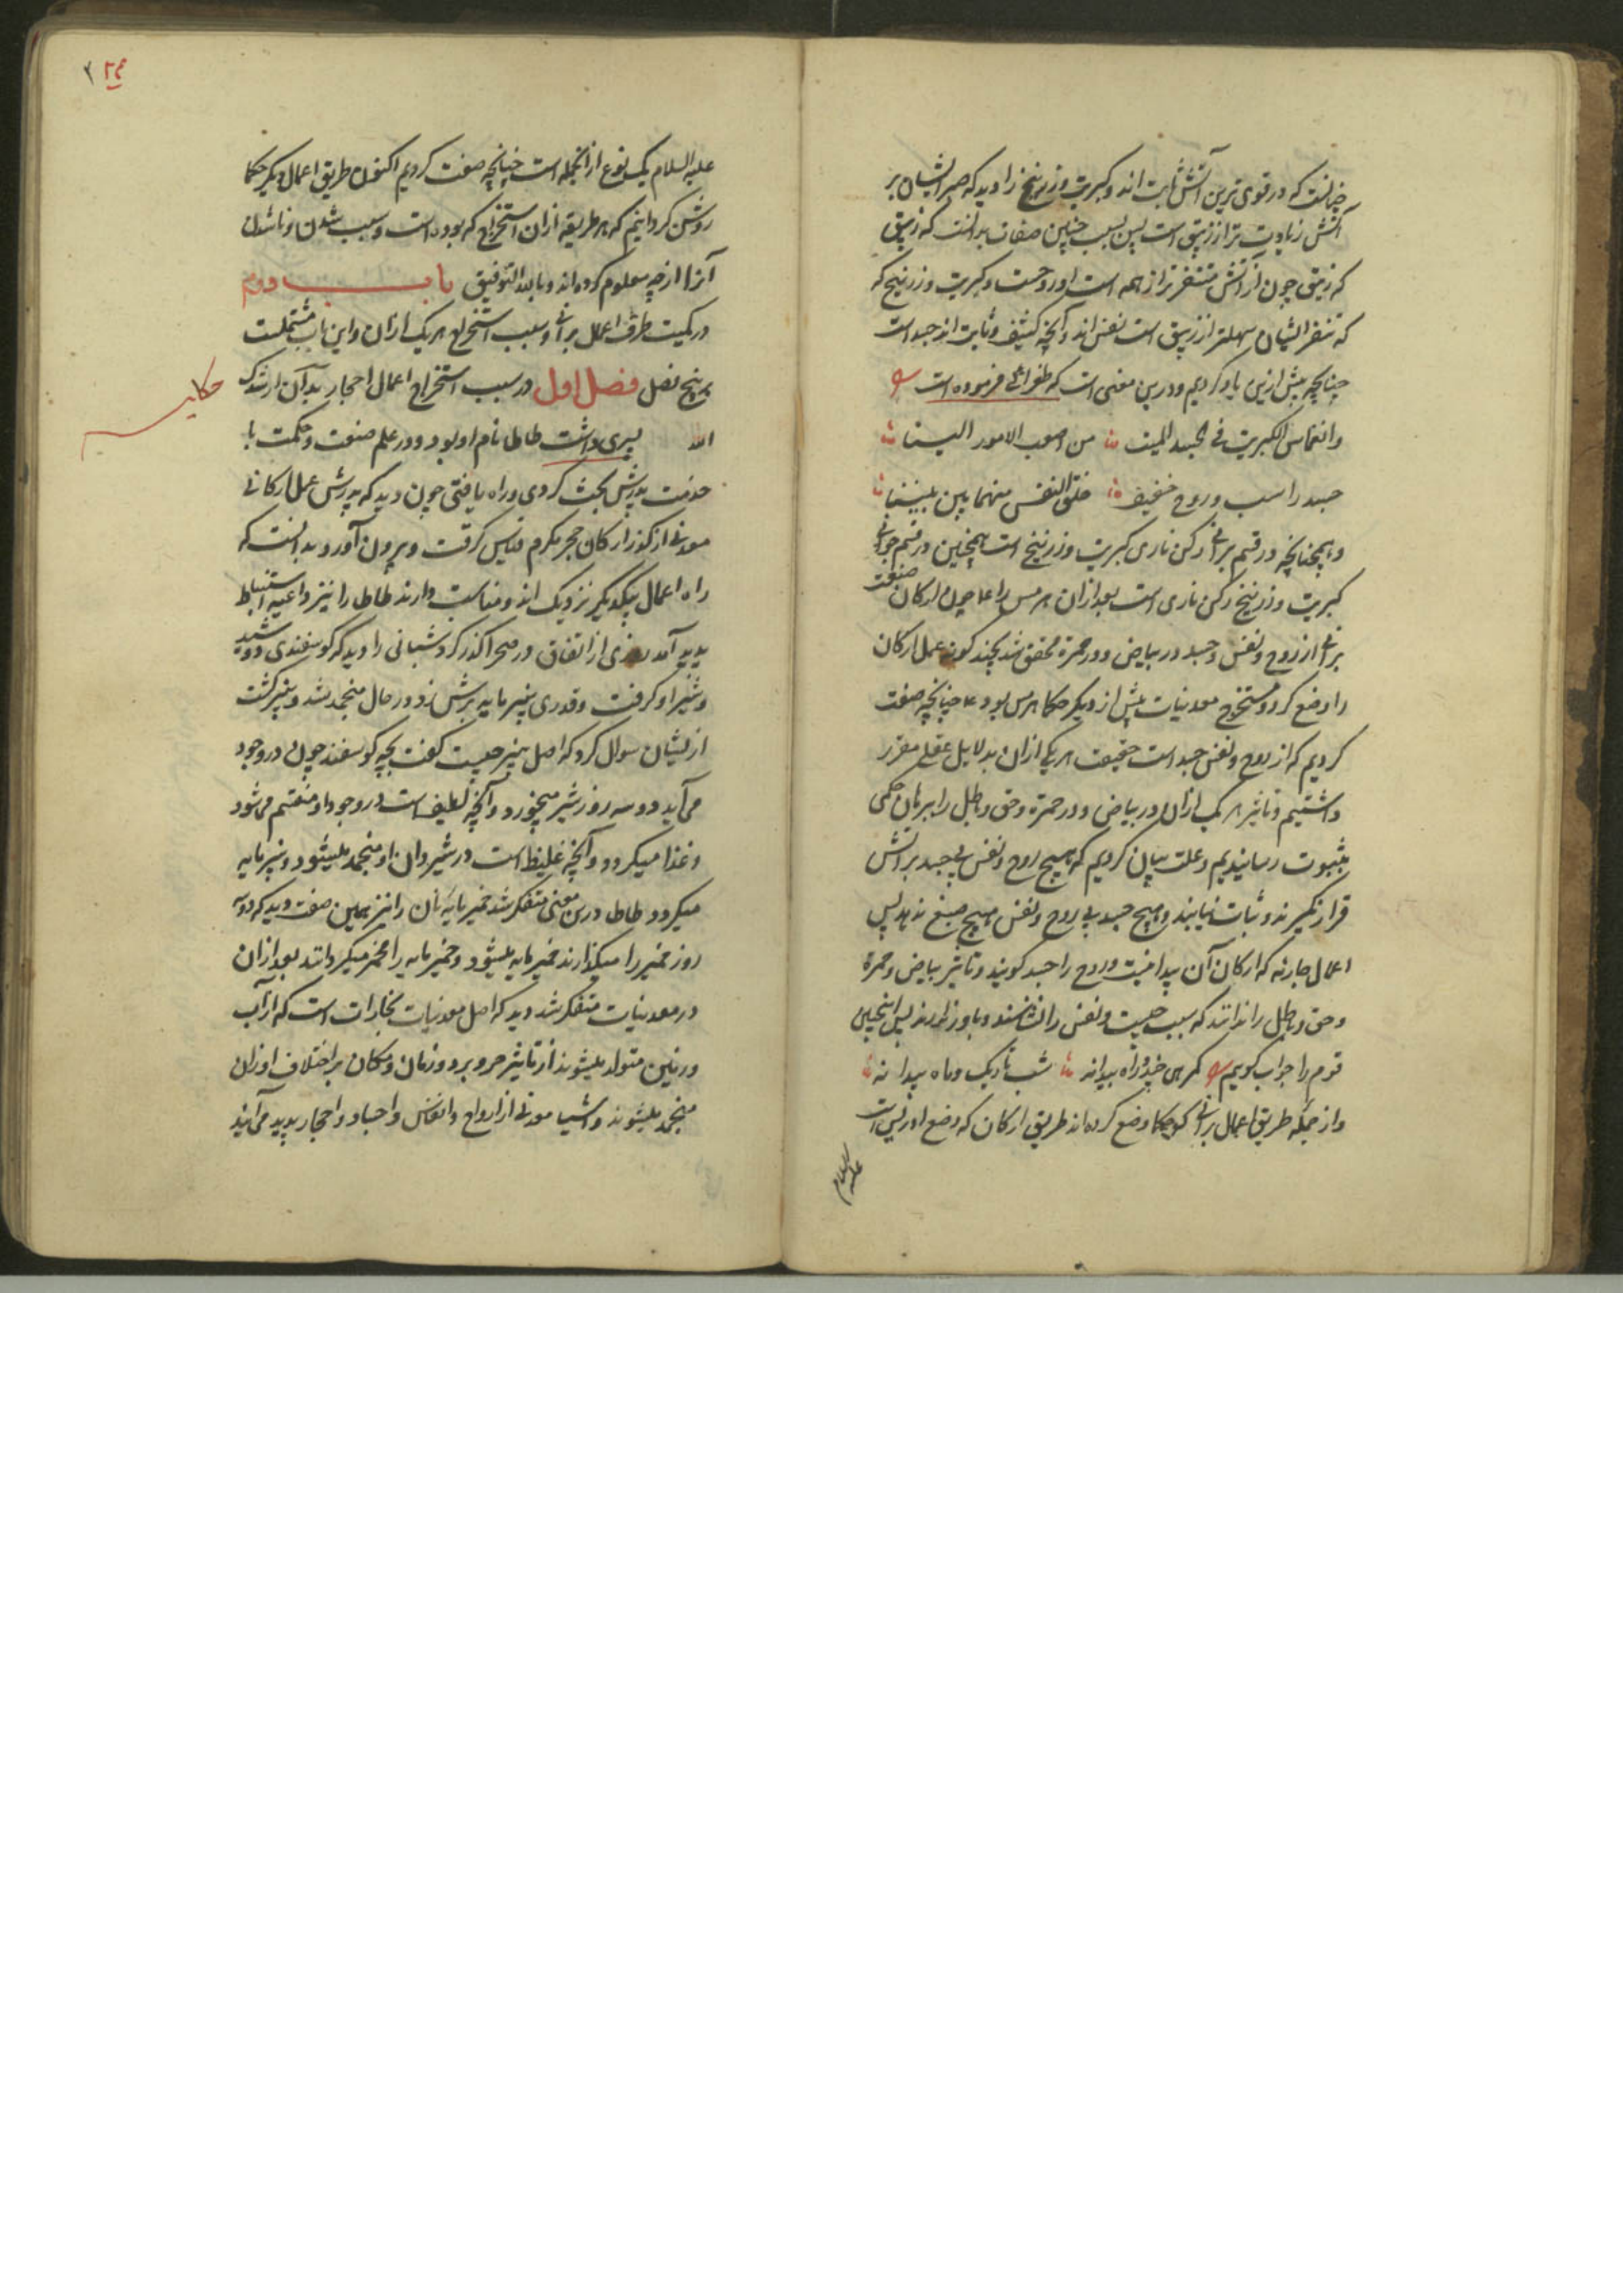 چنانست که در قوی ترین آتش ثابت اند و کبریت و زرنیخ را دید که صبر ایشان بر
آتش زیادت تر از زیبق است پس بسبب چنین صفات بدانست که زیبق
که زیبق چون از آتش متنفرتر از همه است او روحست و کبریت و زرنیخ که
که تنفر ایشان سهلتر از زیبق است نفس اند و آنچه کثیف و ثابت اند جسد است
چنانچه پیش ازین یاد کردیم و درین معنی است که طغرائی فرموده است
وانغماس الکبریت فی الجسد المیت من اصعب الامور الینا
جسد راسب وروح خفیف خلق النفس منهما بین بینا
و همچنانچه در قسم برانی رکن ناری کبریت و زرنیخ است همچنین در قسم جوانی
کبریت و زرنیخ رکن ناری است بعد از آن هرمس را ع‍ چون ارکان صنعت
برانی از روح و نفس و جسد در بیاض و در حمرة محقق شد بچند گونه عمل ارکان
را وضع کرد و مستخرج معدنیات پیش از دیگر حکما هرمس بود ع‍ چنانچه صفت
کردیم که از روح و نفس جسد است حقیقت هر یکی از آن بدلایل عقلی مقرر
داشتیم و تاثیر هر یک از آن در بیاض و در حمرة و حق و باطل را ببرهان حکمی
بثبوت رسانیدیم و علت بیان کردیم که هیچ روح و نفس بی جسد بر آتش
قرار نگیرند و ثبات نیابند و هیچ جسد بی روح و نفس هیچ صبغ ندهد پس
اعمال که ارکان آن پیدا نیست و روح را جسد گویند و تاثیر بیاض و حمرة
و حق و باطل را ندانند که سبب چیست و نفس را نشناسند و باور ندارند پس اینچنین
قوم را جواب گویم گمرهی خود راه بیدانه شب تاریک و ماه پیدا نه
و از جمله طریق اعمال برانی که حکما وضع کرده اند طریق ارکان که وضع ادریس است
علیه السلام
علیه السلام یک نوع از آنجمله است چنانچه صفت کردیم اکنون طریق اعمال دیگر حکما
روشن گردانیم که هر طریقه از آن استخراج که بوده است و سبب شدن و ناشدن
آنرا از چه معلوم کرده اند و بالله التوفیق باب دوم
در کمیت طرق اعمال برانی و سبب استخراج هر یک از آن و این باب مشتملست
بر پنج فصل فصل اول در سبب استخراج اعمال احجار بدآن ارشدک
حکایت
الله پسری داشت طاطا نام او بود و در علم صنعت و حکمت با
خدمت پدرش بحث کردی و راه یافتی چون دید که پدرش عمل ارکانی
معدنی از ارکان حجر مکرم قیاس گرفت و بیرون آورد و بدانست که
راه اعمال بیکدیگر نزدیک اند و مناسبت دارند طاطا را نیز داعیه استنباط
پدید آمد روزی از اتفاق در صحرا گذر کرد شبانی را دید که گوسفندی دوشید
و شیر او گرفت و قدری پنیر مایه برش زد در حال منجمد شد و پنیر گشت
از ایشان سوال کرد که اصل پنیر چیست گفت بچه گوسفند چون در وجود
می آید دو سه روز شیر میخورد و آنچه لطیف است در وجود او منقسم می شود
و غذا میگردد و آنچه غلیظ است در شیردان او منجمد میشود و پنیر مایه
میگردد طاطا درین معنی متفکر شد خمیر مایه نان را نیز بهمین صفت دید که دو سه
روز خمیر را میگذارند خمیر مایه میشود و خمیر مایه را مخمر میگردانند بعد از آن
در معدنیات متفکر شد دید که اصل معدنیات بخارات است که از آب
و زمین متولد میشوند از تاثیر حر و برد و زمان و مکان بر اختلاف اوزان
منجمد میشوند و اشیا معدنی از ارواح و انفس و اجساد و احجار پدید می آیند